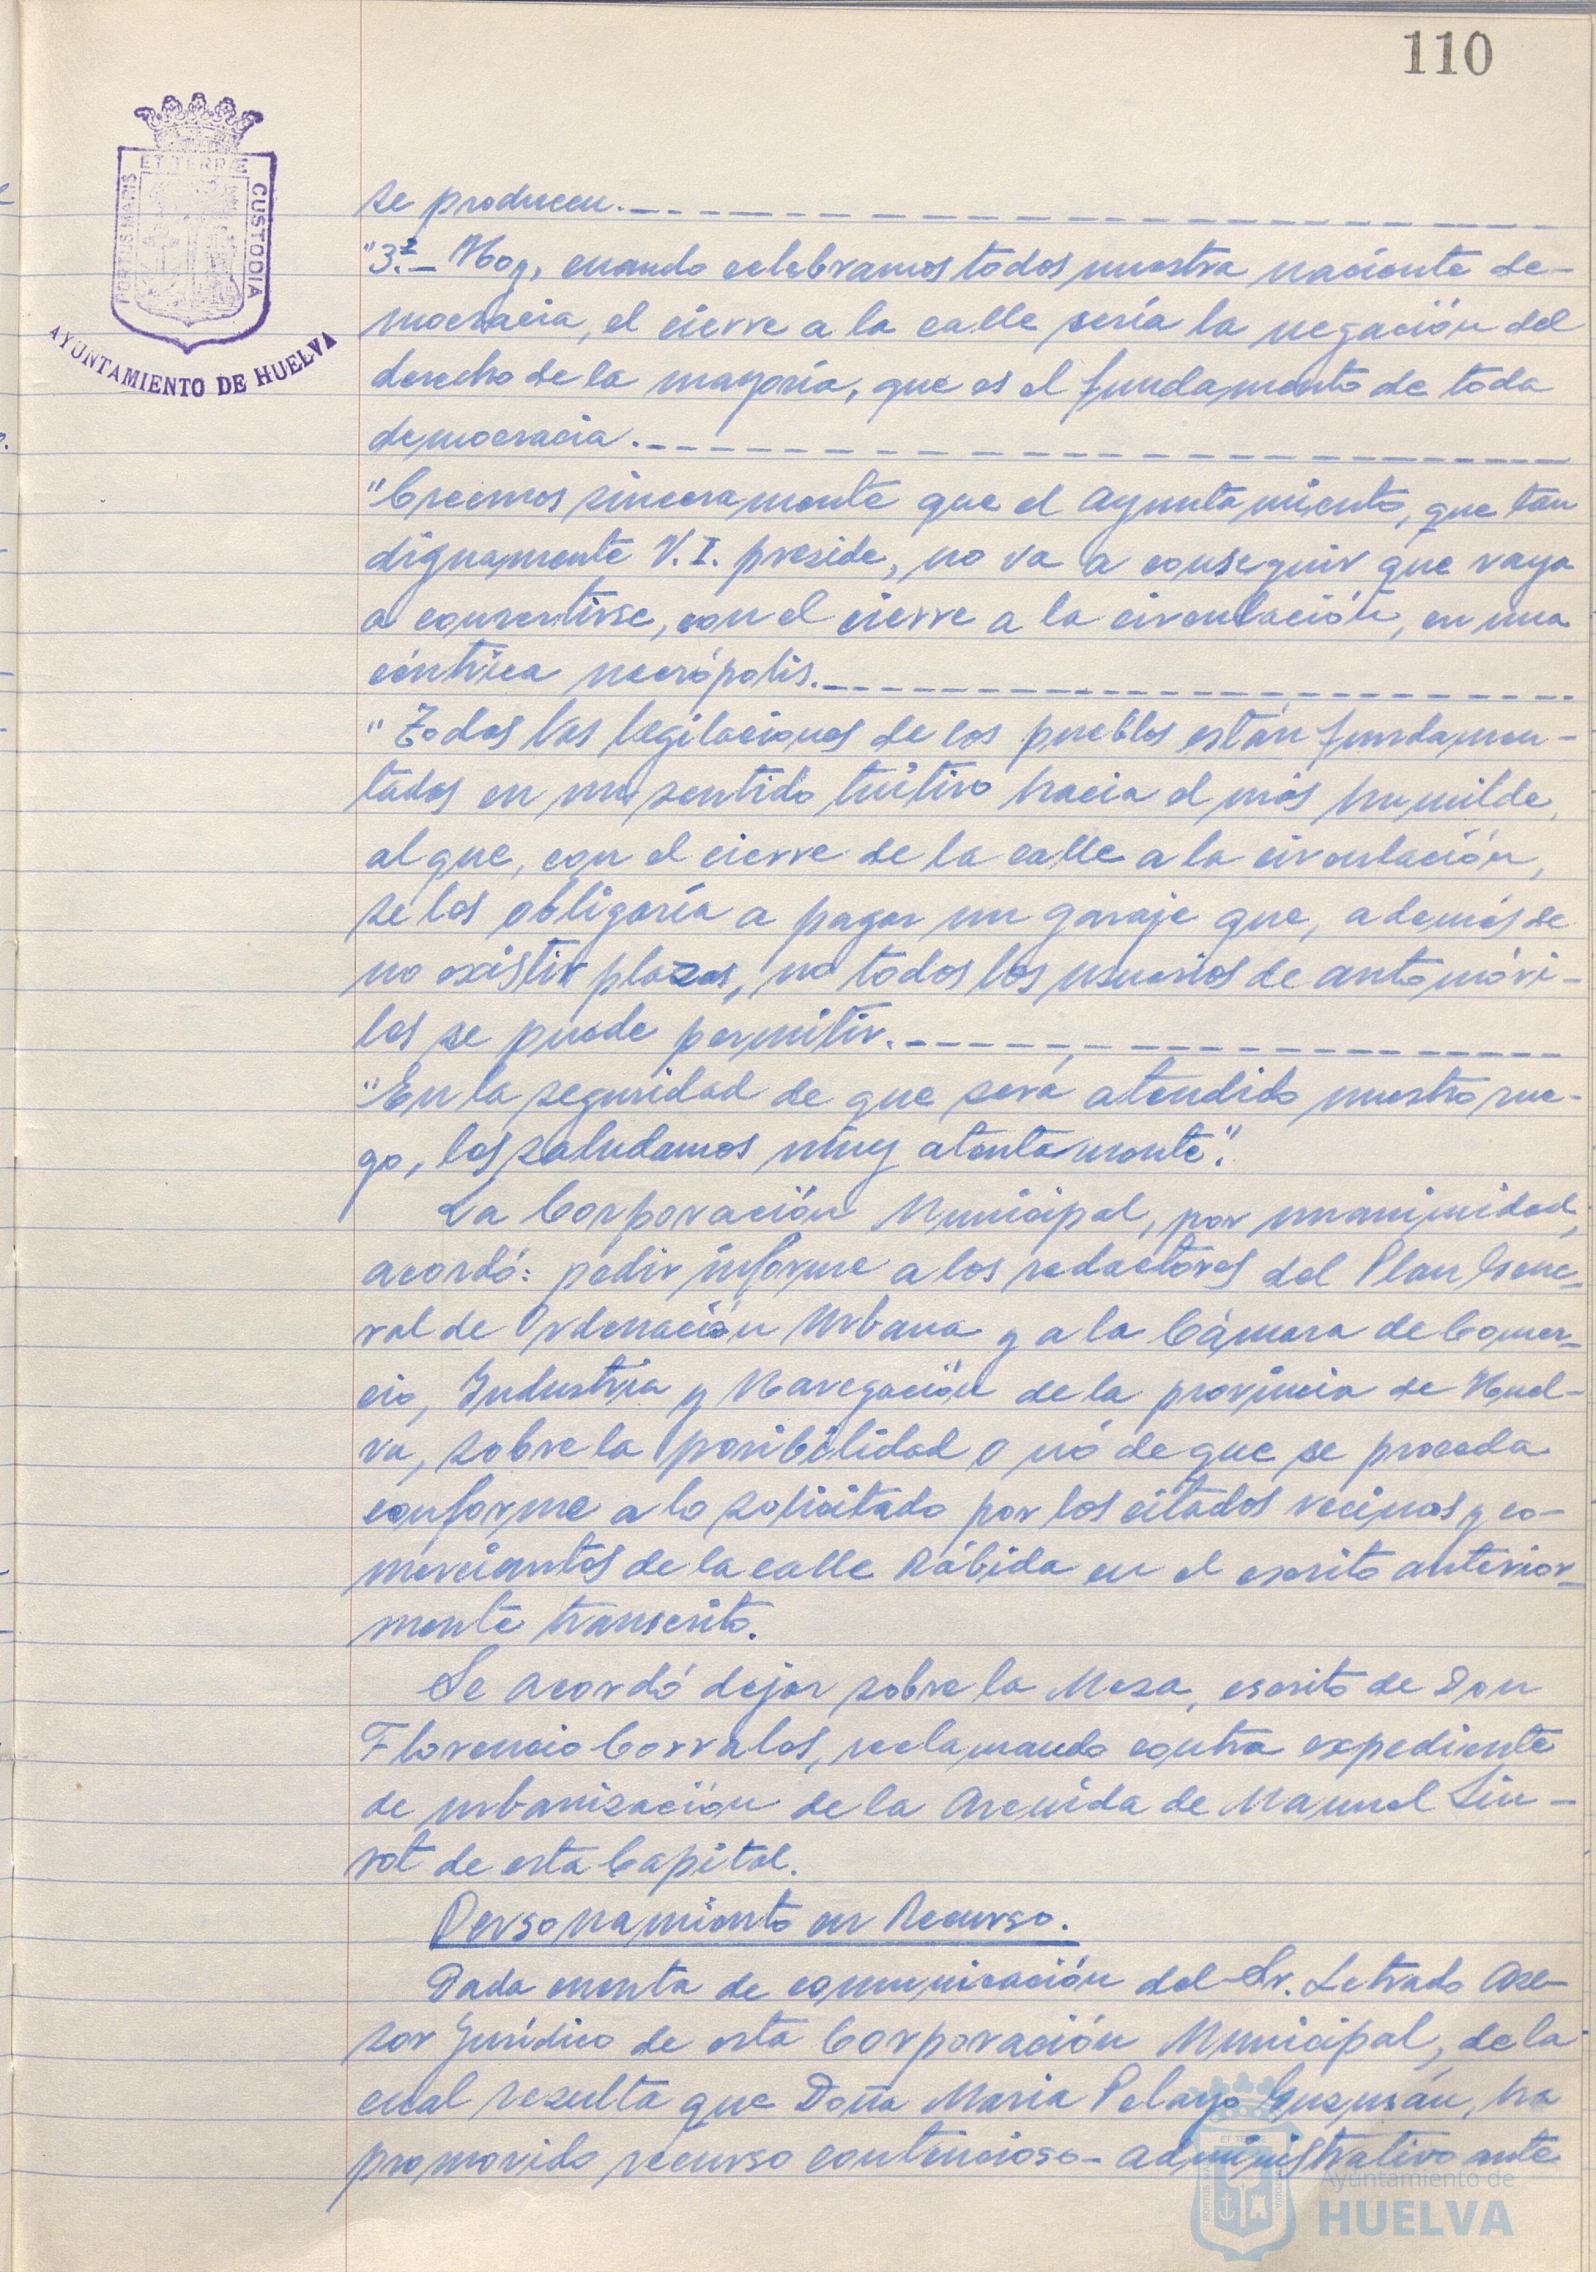 110
ET TERRÆ
PORTUS MARIS
CUSTODIA
AYUNTAMIENTO DE HUELVA
se producen.
"3º.- Hoy, cuando celebramos todos nuestra naciente de-
mocracia, el cierre a la calle sería la negación del
derecho de la mayoría, que es el fundamento de toda
democracia.
"Creemos sinceramente que el Ayuntamiento, que tan
dignamente V.I. preside, no va a conseguir que vaya
a convertirse, con el cierre a la circulación, en una
céntrica necrópolis.
"Todas las legilaciones de los pueblos están fundamen-
tadas en un sentido tuitivo hacia el más humilde,
al que, con el cierre de la calle a la circulación,
se los obligaría a pagar un garaje que, además de
no existir plazas, no todos los usuarios de automóvi-
les se puede permitir.
"En la seguridad de que será atendido nuestro rue-
go, les saludamos muy atentamente".
La Corporación Municipal, por unanimidad,
acordó: pedir informe a los redactores del Plan Gene-
ral de Ordenación Urbana y a la Cámara de Comer-
cio, Industria y Navegación de la provincia de Huel-
va, sobre la posibilidad o nó de que se proceda
conforme a lo solicitado por los citados vecinos y co-
merciantes de la calle Rábida en el escrito anterior-
mente transcrito.
Se acordó dejar sobre la Mesa, escrito de Don
Florencio Corrales, reclamando contra expediente
de urbanización de la Avenida de Manuel Siu-
rot de esta Capital.
Personamiento en Recurso.
Dada cuenta de comunicación del Sr. Letrado Ase-
sor Jurídico de esta Corporación Municipal, de la
cual resulta que Doña Maria Pelayo Guzmán, ha
promovido recurso contencioso-administrativo ante
Ayuntamiento de
HUELVA